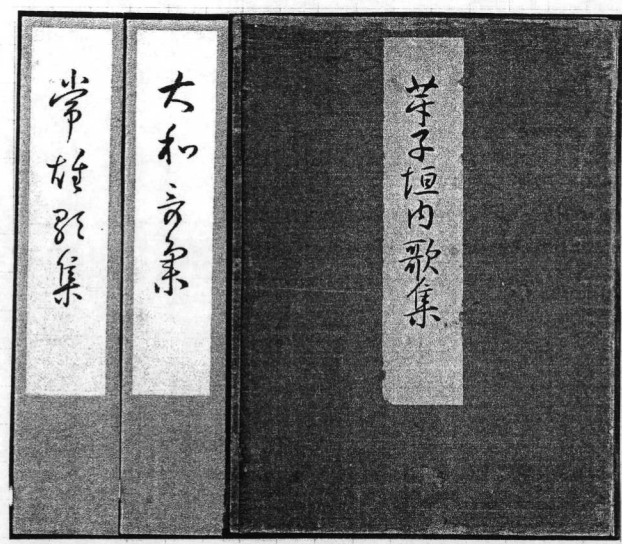 芽子垣内歌集
大和哥集
常雄歌集